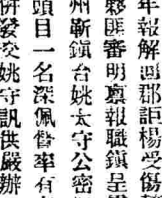 年報解回郡詎楊受傷
夥匪審明稟報職鎮呈
州蘄鎮台姚太守公密
頭目一名深佩督率有
併發交姚守訊供嚴辦